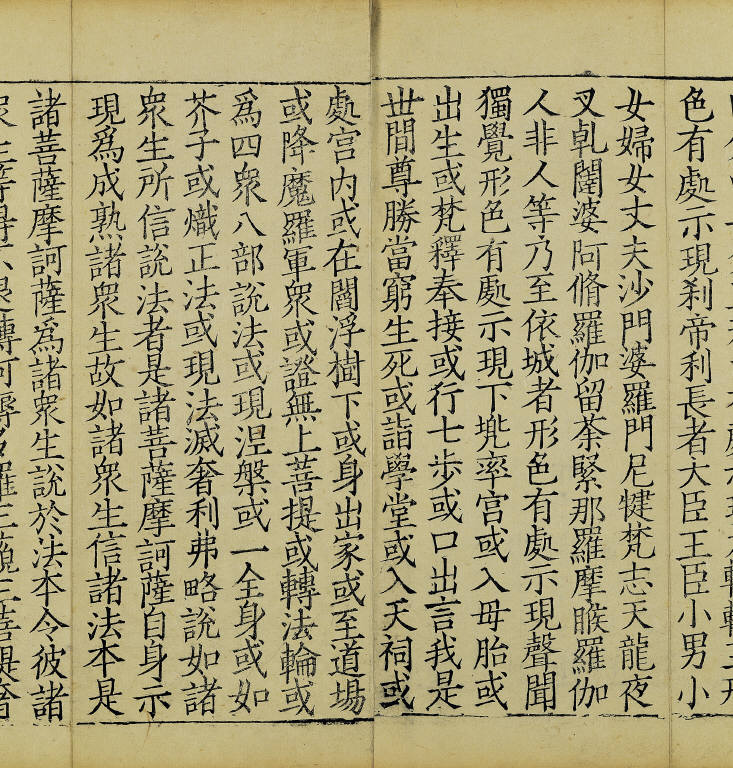 色有處示現刹帝利長者大臣王臣小男小
女婦女丈夫沙門婆羅門尼犍梵志天龍夜
叉乹闥婆阿脩羅伽留荼緊那羅摩睺羅伽
人非人等乃至依城者形色有處示現聲聞
獨覺形色有處示現下兠率宫或入母胎或
出生或梵釋奉接或行七歩或口出言我是
丗間尊勝當窮生死或詣學堂或入天祠或
處宫内或在閻浮樹下或身出家或至道場
或降魔羅軍衆或證無上菩提或轉法輪或
為四衆八部說法或現涅槃或一全身或如
芥子或熾正法或現法滅奢利弗略說如諸
衆生所信說法者是諸菩薩摩訶薩自身示
現為成熟諸衆生故如諸衆生信諸法本是
諸菩薩摩訶薩為諸衆生說於法本令彼諸